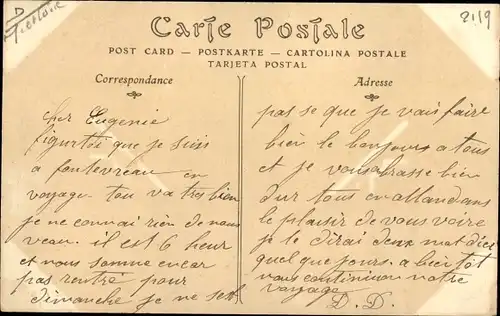 D
2119
Carte Postale
POST CARD — POSTKARTE — CARTOLINA POSTALE
TARJETA POSTAL
Correspondance
cher Eugenie
figurtoi que je suis
a fontevreau en
voyage tou va tres bien
je ne connai rien de nou
veau. il est 6 heur
et nous somme encar
pas rentré pour
dimanche je ne se
Adresse
pas se que je vais faire
bien le bonjour a tous
et je vous brasse bien
dur tous en
le plaisir de vous voire
je te dirai deux mat dici
quel que jours. a bientôt
vous continuon notre
voyage
D. D.